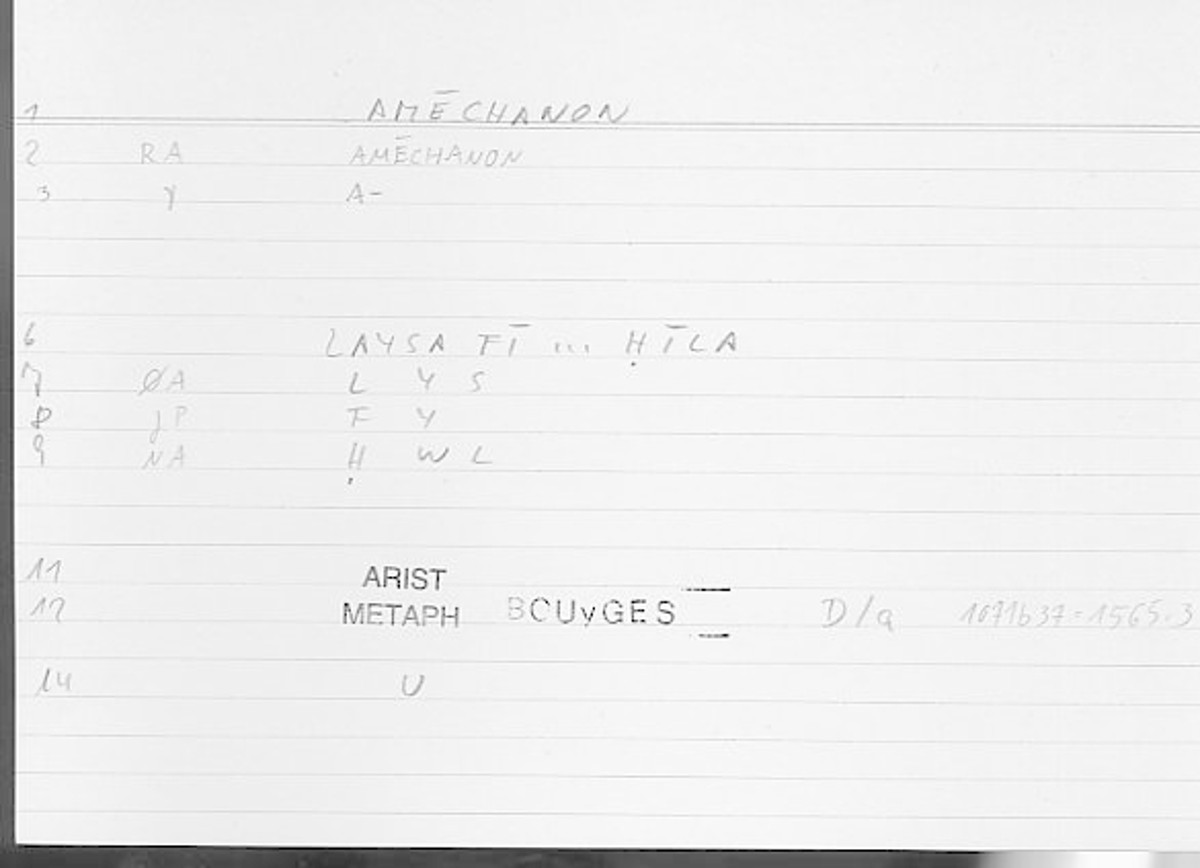 1 AMĒCHANON
2 RA AMĒCHANON
3 γ A-
6 LAYSA FĪ ... ḤĪLA
7 ØA L Y S
8 JP F Y
9 NA Ḥ W L
11 ARIST
12 METAPH BOUyGES D/a 1071b37=1565.3
14 U